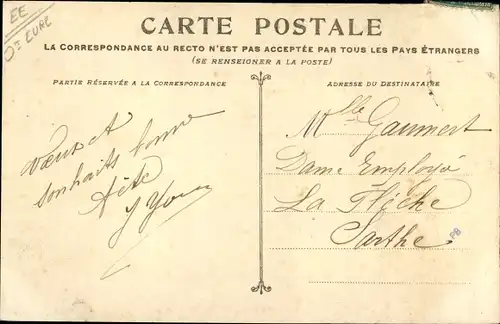 EE
Dt EURE
CARTE POSTALE
LA CORRESPONDANCE AU RECTO N'EST PAS ACCEPTÉE PAR TOUS LES PAYS ÉTRANGERS
(SE RENSEIGNER A LA POSTE)
PARTIE RÉSERVÉE A LA CORRESPONDANCE
Voeux et
Souhaits bonne
fête
Y Yvon
ADRESSE DU DESTINATAIRE
Mlle Gaumert
Dame Employé
La Flèche
Sarthe
PB